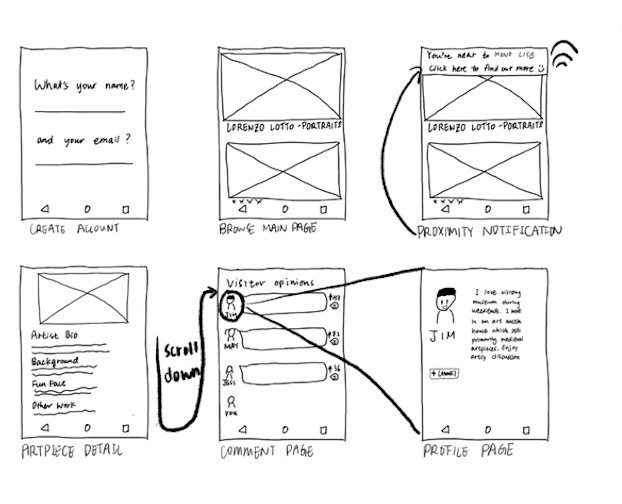 What's your name?
and your email?
CREATE ACCOUNT
LORENZO LOTTO - PORTRAITS
BROWSE MAIN PAGE
You're near to MONA LISA
Click here to find out more
LORENZO LOTTO - PORTRAITS
PROXIMITY NOTIFICATION
Artist Bio
Background
Fun Fact
Other Work
ARTPIECE DETAIL
scroll
down
Visitor opinions
JIM
MAY
JESS
YOU
COMMENT PAGE
JIM
I love visiting
museum during
weekends. I work
in an art
house which sells
primarily medieval
artpieces. Enjoy
artsy discussion
PROFILE PAGE